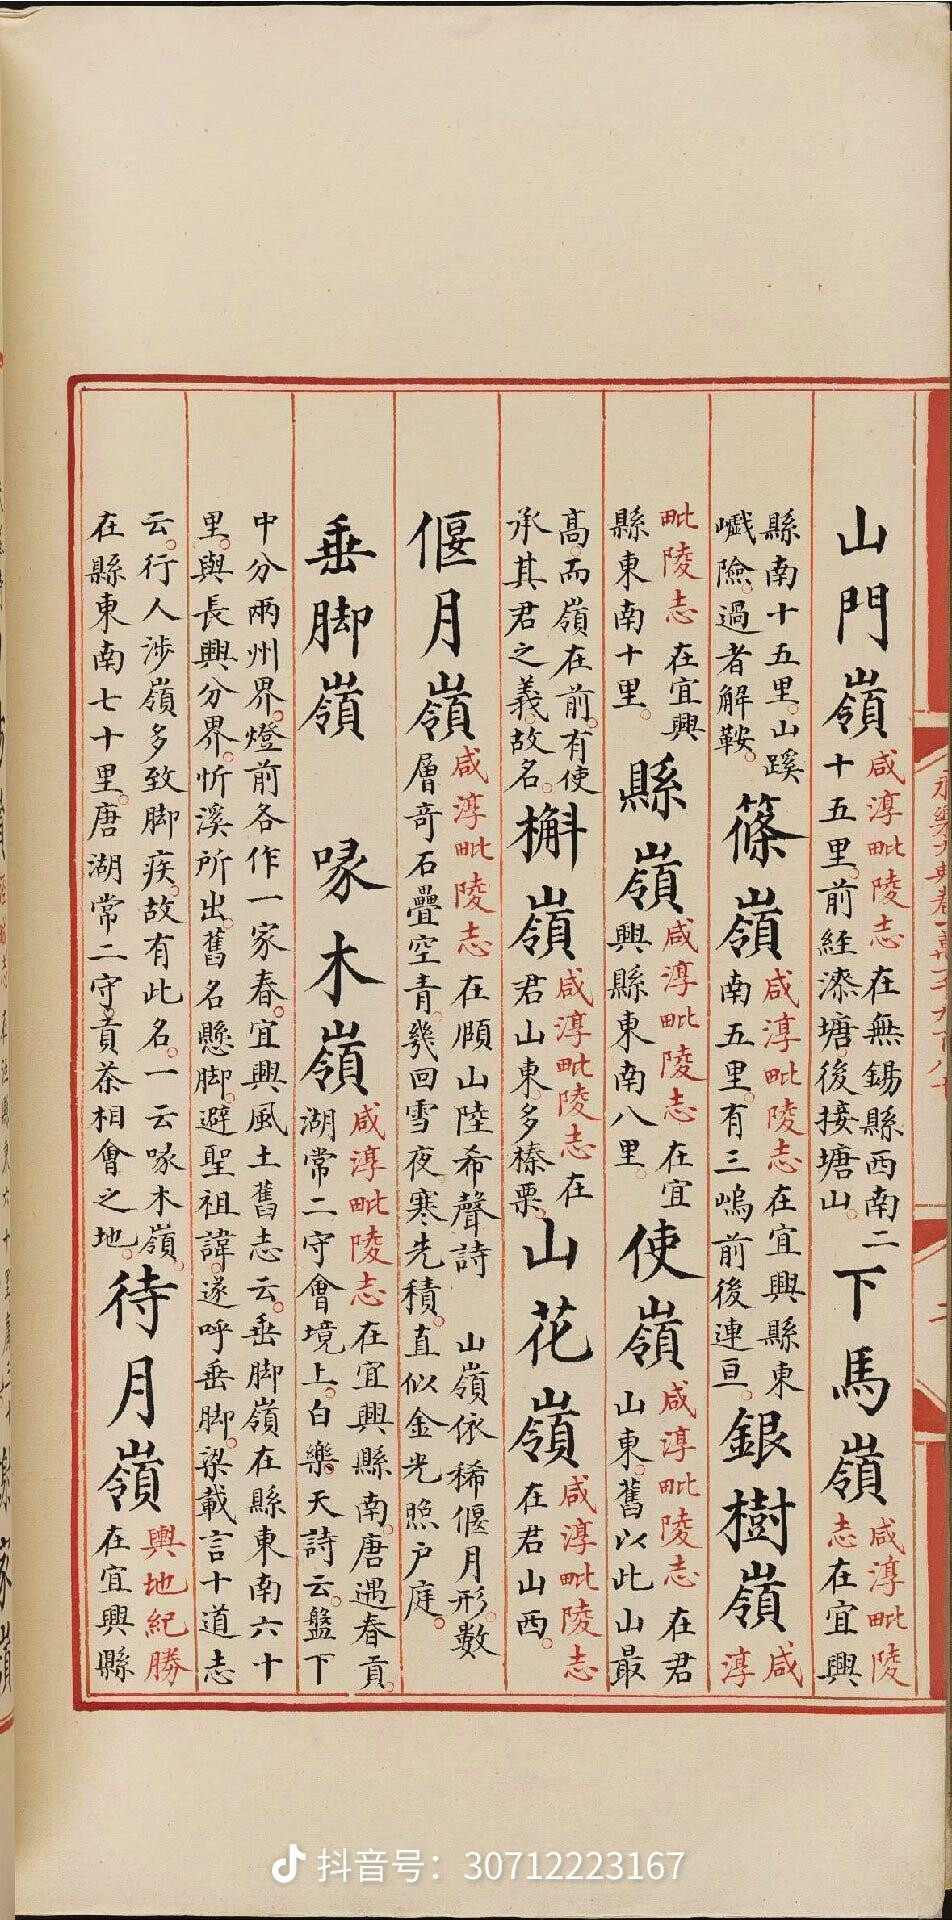 山門嶺咸淳毗陵志在無錫縣西南二十五里。前経漆塘。後接塘山。下馬嶺咸淳毗陵志在宜興
縣南十五里。山蹊巇險。過者解鞍。篠嶺咸淳毗陵志在宜興縣東南五里。有三嵨前後連亘。銀樹嶺咸淳
毗陵志在宜興縣東南十里。縣嶺咸淳毗陵志在宜興縣東南八里。使嶺咸淳毗陵志在君山東。舊以此山最
高。而嶺在前。有使承其君之義。故名。槲嶺咸淳毗陵志在君山東。多榛栗。山花嶺咸淳毗陵志在君山西。
偃月嶺咸淳毗陵志在頋山陸希聲詩 山嶺依稀偃月形。數層奇石疊空青。幾回雪夜寒先積。直似金光照户庭。
垂脚嶺 啄木嶺咸淳毗陵志在宜興縣南。唐遇春貢。湖常二守會境上。白樂天詩云。盤下
中分兩州界。燈前各作一家春。宜興風土舊志云。垂脚嶺在縣東南六十里。與長興分界。忻溪所出。舊名懸脚。避聖祖諱。遂呼垂脚。梁載言十道志
云。行人涉嶺多致脚疾。故有此名。一云啄木嶺。在縣東南七十里。唐湖常二守。貢茶相會之地。待月嶺輿地紀勝在宜興縣
抖音号：30712223167